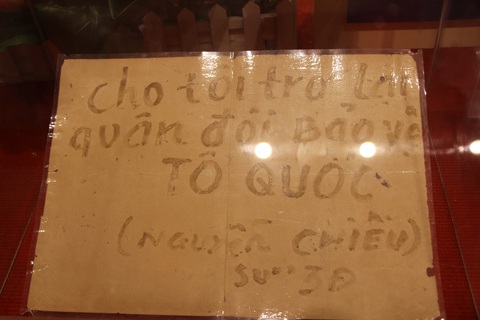 Cho tôi trở lại
quân đội Bảo vệ
TỔ QUỐC
(NGUYỄN CHIỀU)
Sư 3Đ